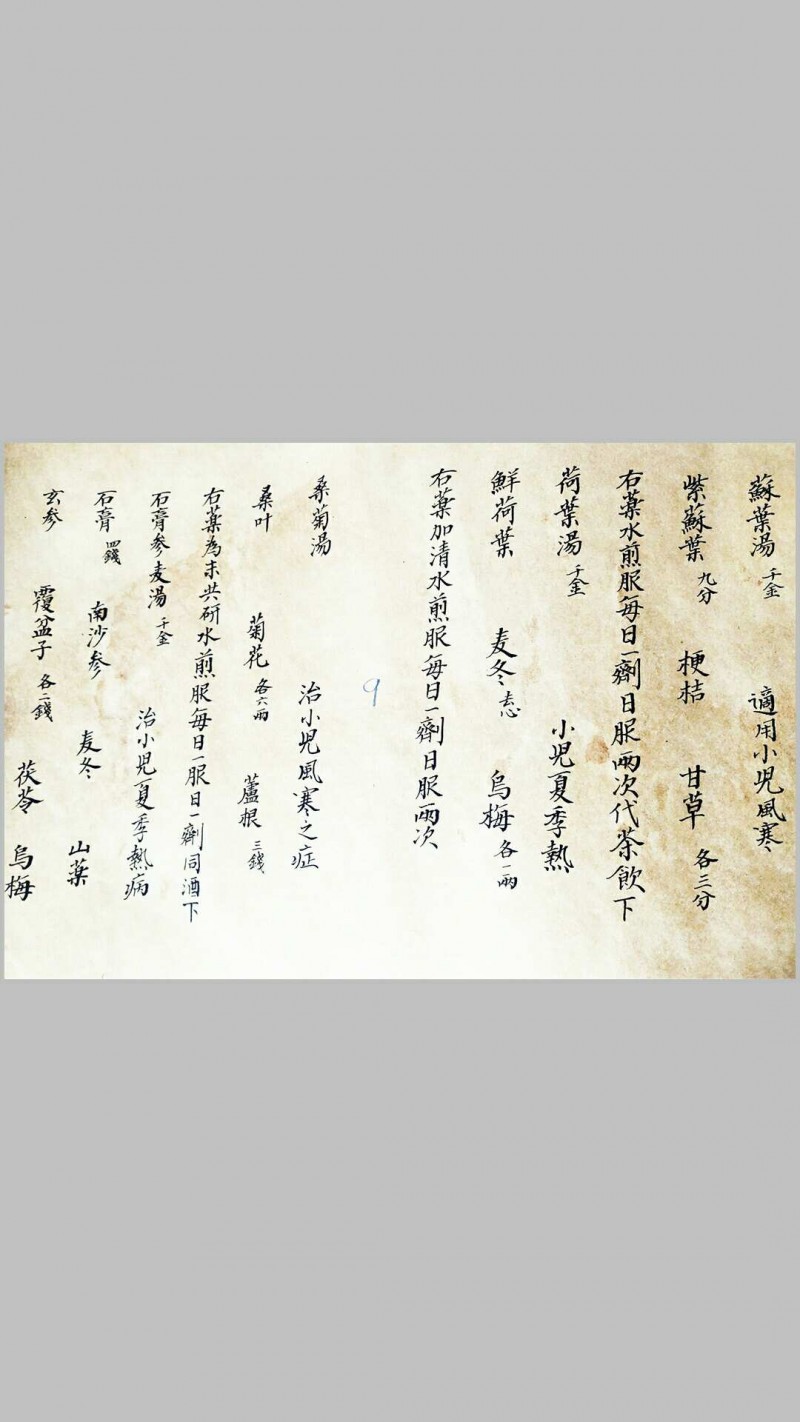 蘇葉湯 千金 適用小児風寒
紫蘇葉 九分 梗桔 甘草 各三分
右薬水煎服每日一劑日服兩次代茶飲下
荷葉湯 千金 小児夏季熱
鮮荷葉 麦冬 志 烏梅 各一兩
右薬加清水煎服每日一劑日服兩次
9
桑菊湯 治小児風寒之症
桑叶 菊花 各六兩 蘆根 三錢
右薬為末共研水煎服每日一服日一劑同酒下
石膏參麦湯 千金 治小児夏季熱病
石膏 四錢 南沙參 麦冬 山薬
玄參 覆盆子 各二錢 茯苓 烏梅